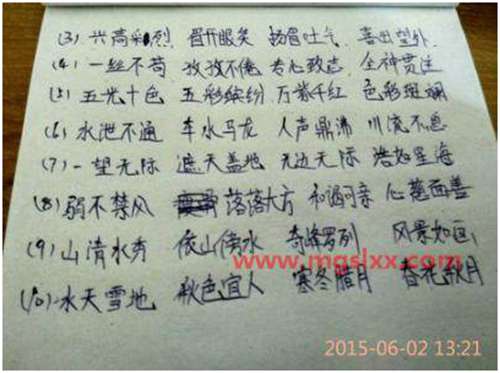 (3) 兴高采烈 眉开眼笑 扬眉吐气 喜出望外
(4) 一丝不苟 孜孜不倦 专心致志 全神贯注
(5) 五光十色 五彩缤纷 万紫千红 色彩斑斓
(6) 水泄不通 车水马龙 人声鼎沸 川流不息
(7) 一望无际 遮天盖地 无边无际 浩如星海
(8) 弱不禁风 落落大方 和谒可亲 心慈面善
(9) 山清水秀 依山傍水 奇峰罗列 风景如画
www.mgslxx.com
(10) 冰天雪地 秋色宜人 寒冬腊月 春花秋月
2015-06-02 13:21